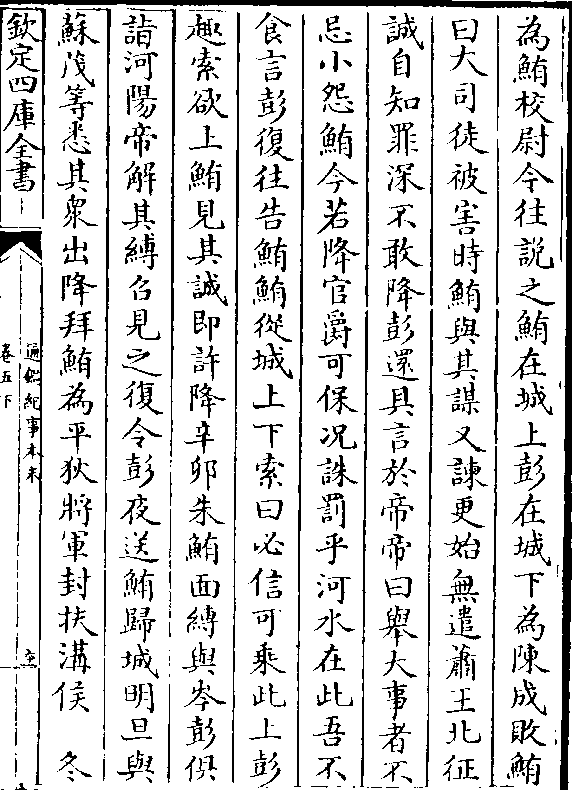 為鮪校尉令往説之鮪在城上彭在城下為陳成敗鮪
曰大司徒被害時鮪與其謀又諫更始無遣蕭王北征
誠自知罪深不敢降彭還具言於帝帝曰舉大事者不
忌小怨鮪今若降官爵可保况誅罰乎河水在此吾不
食言彭復往告鮪鮪從城上下索曰必信可乗此上彭
趣索欲上鮪見其誠即許降辛卯朱鮪面縛與岑彭俱
詣河陽帝解其縛召見之復令彭夜送鮪歸城明旦與
蘇茂等悉其衆出降拜鮪為平狄將軍封扶溝侯　冬
欽定四庫全書
通鑑紀事本末
卷五下